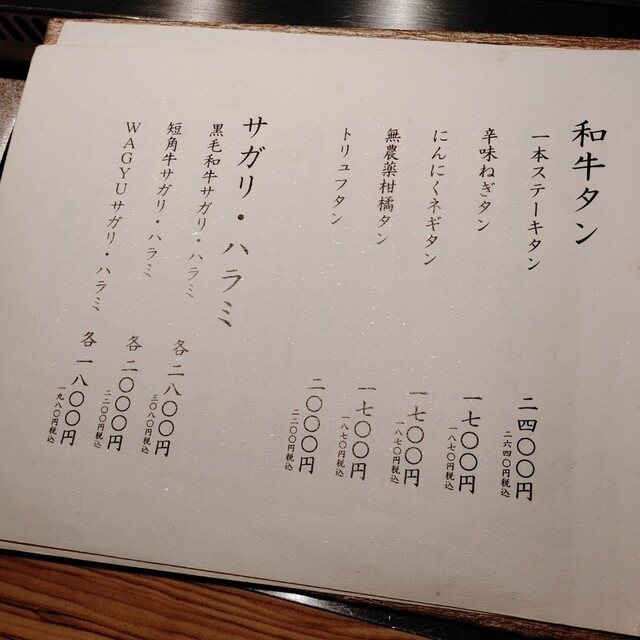 和牛タン
一本ステーキタン
二四〇〇円
二六四〇円税込
辛味ねぎタン
一七〇〇円
一八七〇円税込
にんにくネギタン
一七〇〇円
一八七〇円税込
無農薬柑橘タン
一七〇〇円
一八七〇円税込
トリュフタン
二〇〇〇円
二二〇〇円税込
サガリ・ハラミ
黒毛和牛サガリ・ハラミ
各二八〇〇円
三〇八〇円税込
短角牛サガリ・ハラミ
各二〇〇〇円
二二〇〇円税込
WAGYUサガリ・ハラミ
各一八〇〇円
一九八〇円税込